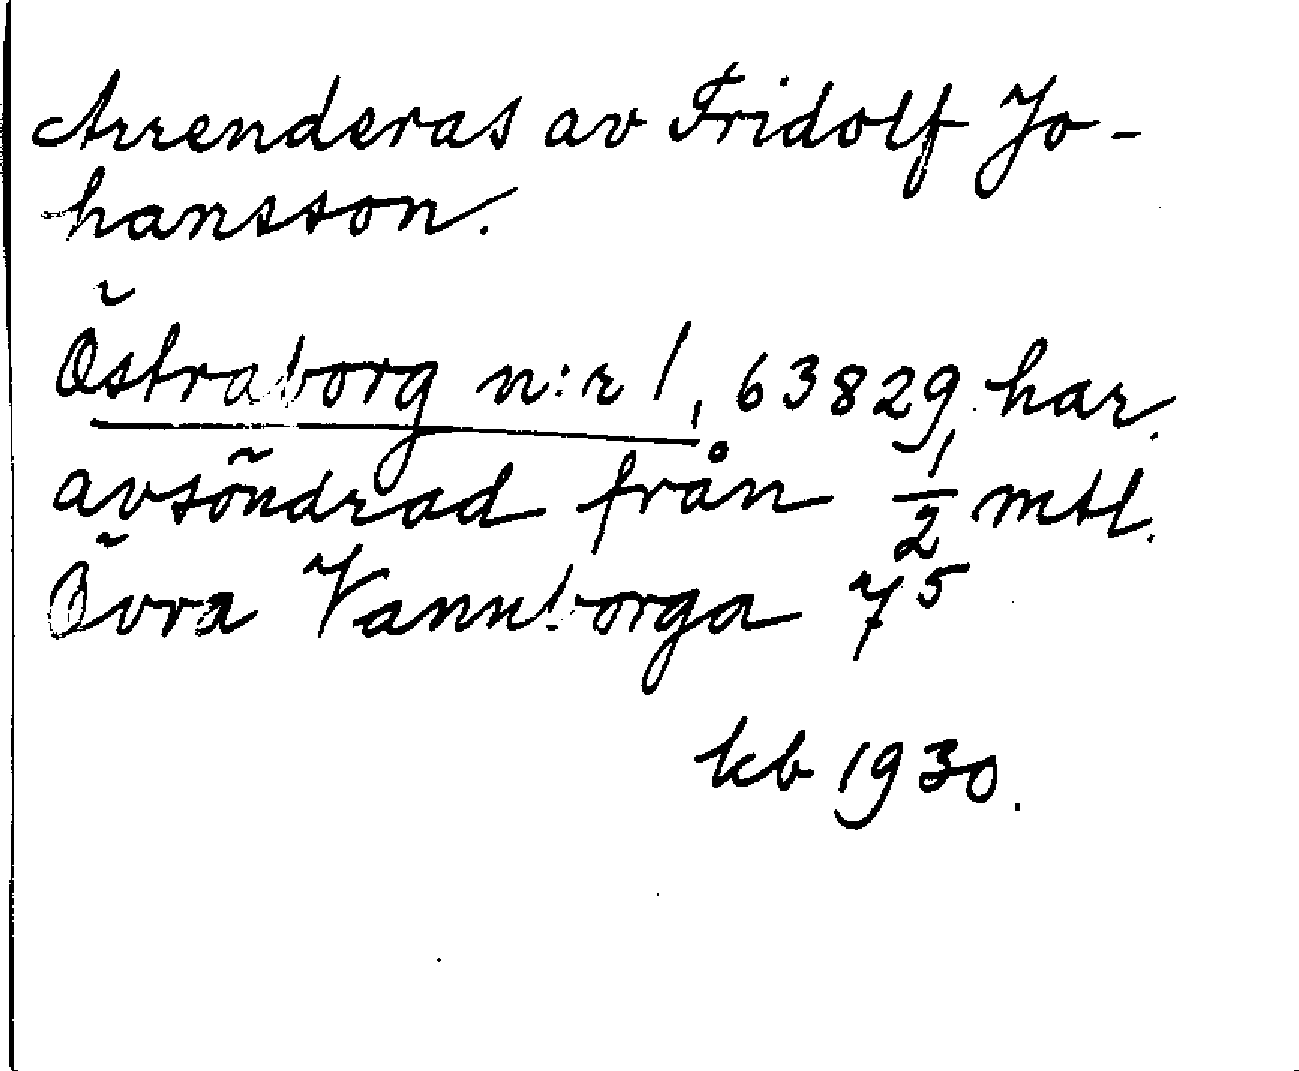 Arrenderas av Fridolf Jo-
hansson.
Östraborg n:r 1, 63829 har.
avsöndrad från 1/2 mtl.
Övra Vannborga 7⁵
kb 1930.